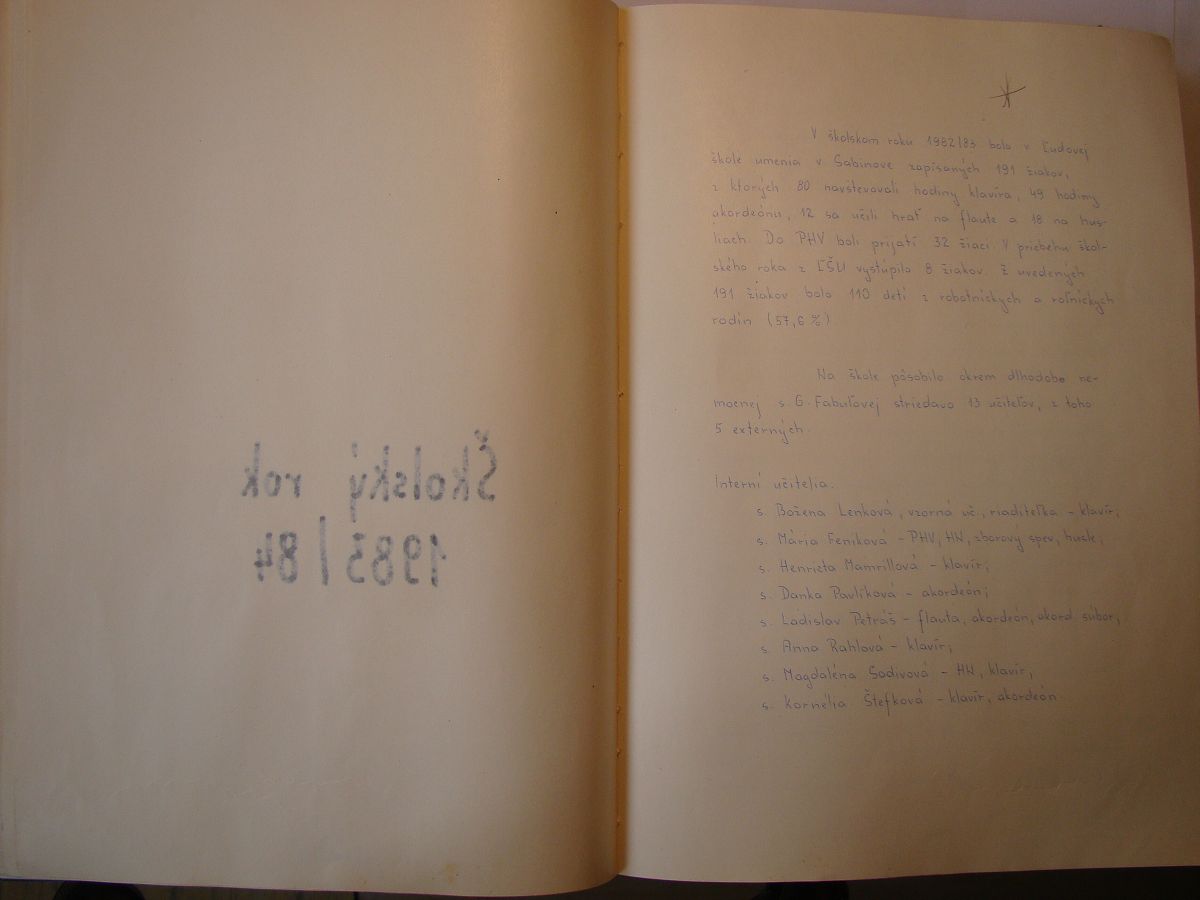 Školský rok
1983/84
V školskom roku 1982/83 bolo v Ľudovej
škole umenia v Sabinove zapísaných 191 žiakov,
z ktorých 80 navštevovali hodiny klavíra, 49 hodiny
akordeónu, 12 sa učili hrať na flaute a 18 na hus-
liach. Do PHV boli prijatí 32 žiaci. V priebehu škol-
ského roka z ĽŠU vystúpilo 8 žiakov. Z uvedených
191 žiakov bolo 110 detí z robotníckych a roľníckych
rodín (57,6 %)
Na škole pôsobilo okrem dlhodobo ne-
mocnej s. G. Fabuľovej striedavo 13 učiteľov, z toho
5 externých.
Interní učitelia.
s. Božena Lenková, vzorná uč., riaditeľka - klavír,
s. Mária Feníková - PHV, HN, zborový spev, husle,
s. Henrieta Mamrillová - klavír;
s. Danka Pavlíková - akordeón;
s. Ladislav Petráš - flauta, akordeón, akord. súbor,
s. Anna Rahlová - klavír;
s. Magdaléna Sadivová - HN, klavír,
s. Kornélia Štefková - klavír, akordeón.